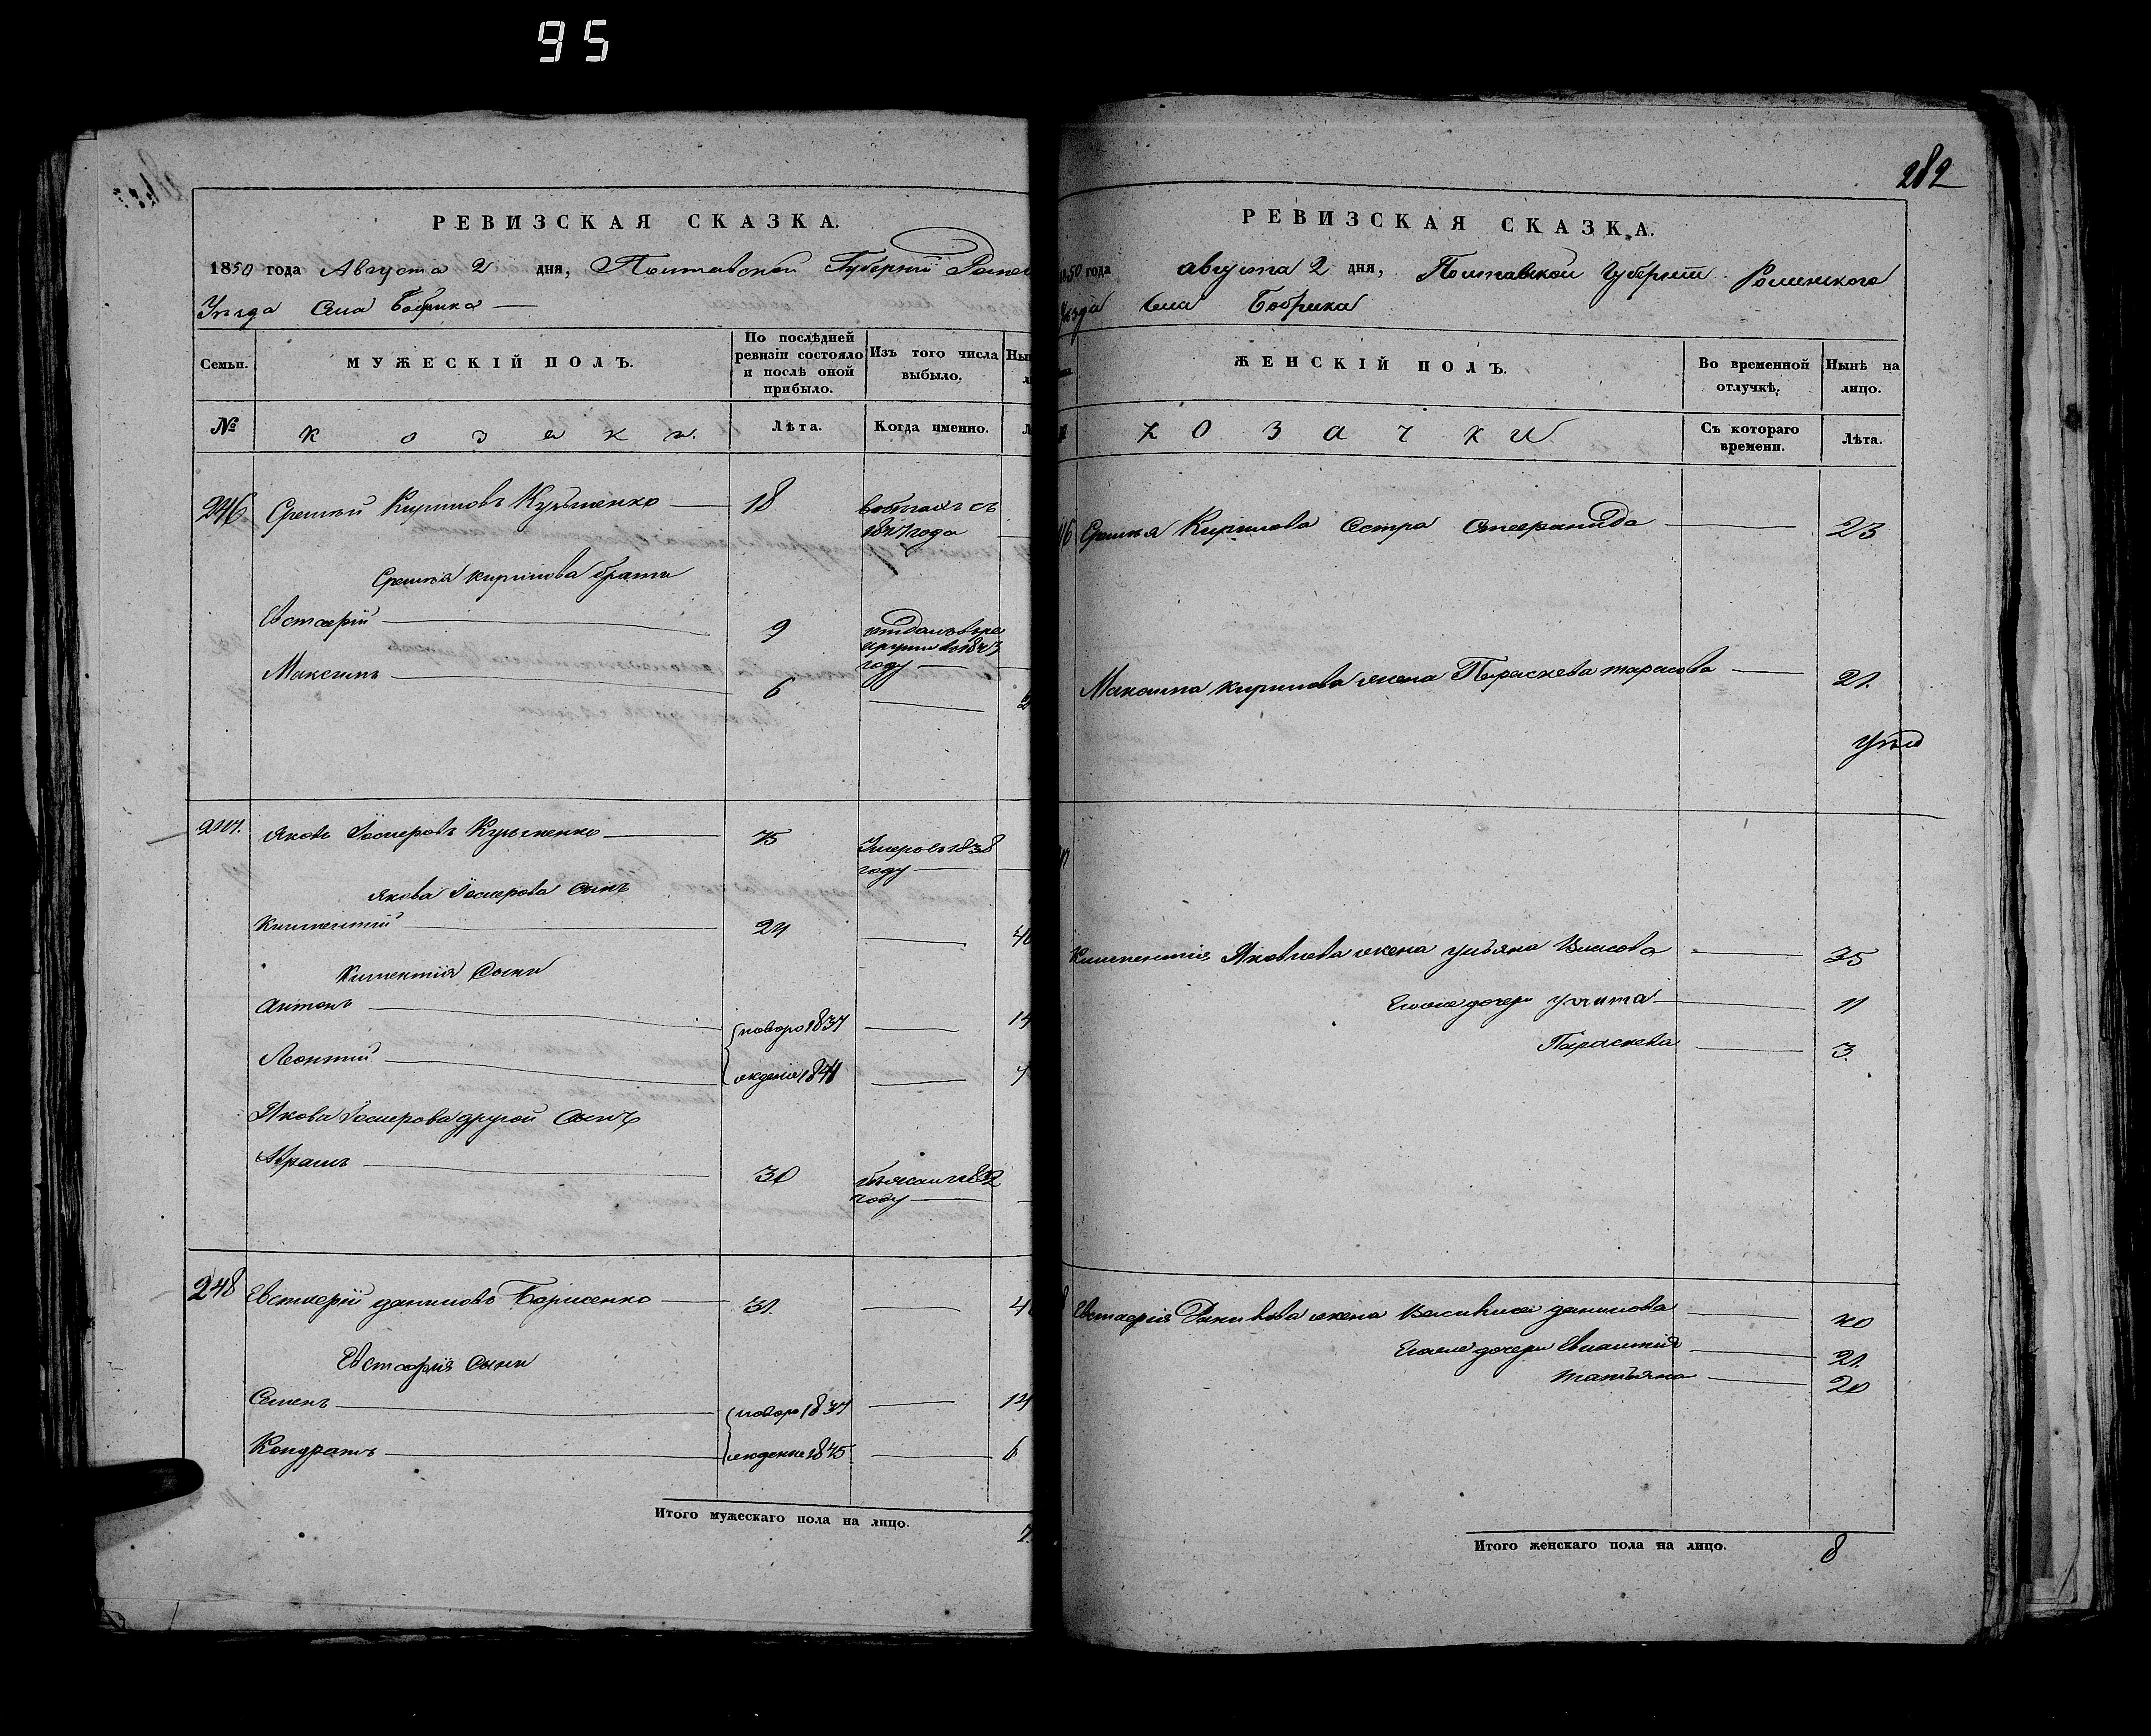 95
РЕВИЗСКАЯ СКАЗКА.
1850 года Августа 2 дня, Полтавской Губернii Ромен
Уезда Села Бобрика
Семьи.
МУЖЕСКІЙ ПОЛЪ.
По послѣдней ревизіи состояло и послѣ оной прибыло.
Изъ того числа выбыло.
№
козаки.
Лѣта.
Когда именно.
246 Кириловъ Кузьменко 18
1847 года
Кирилова братья
Евстафiй 9
1843
году
Максимъ 6
247. Яковъ Кузьменко 75
Умеръ 1838
году
Якова сынъ
Климентiй 24
Климентiя Сыны
Антонъ новоро 1837
Леонтiй жденные 1844
Якова другой Сынъ
Абрамъ 30
году
248 Евстафiй Даниловъ Борисенко 31.
Евстафiя Сыны
Семенъ новоро 1837 14
Кондратъ жденные 1845 6
Итого мужескаго пола на лицо.
282
РЕВИЗСКАЯ СКАЗКА.
1850 года августа 2 дня, Полтавской Губернiи Роменского
Уезда Села Бобрика
ЖЕНСКІЙ ПОЛЪ.
Во временной отлучкѣ.
Нынѣ на лицо.
козачки
Съ котораго времени.
Лѣта.
Кирилова Сестра Стефанида 23
Максима Кирилова жена Параскева Тарасова 21.
Климентiя Яковлева жена Ульяна Власова 35
Его же дочери Улита 11
Параскева 3.
Евстафiя Данилова жена Василиса Данилова 40
Его же дочери Евлампiя 21.
Татьяна 20
Итого женскаго пола на лицо. 8